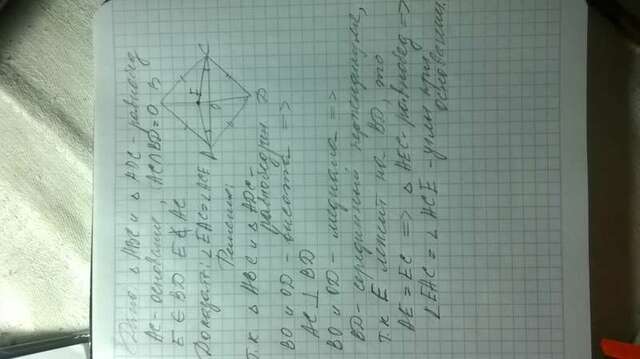 Дано: ΔABC и ΔADC - равнобед
AC - основание, AC∩BD=O
E ∈ BD E ∉ AC
Доказать: ∠EAC = ∠ACE
Решение:
Т.к. ΔABC и ΔADC -
равнобедрен
BO и OD - высота =>
AC ⊥ BD
BO и OD - медиана =>
BD - серединный перпендикуляр,
т.к E лежит на BD, то
AE = EC => ΔAEC - равнобед =>
∠EAC = ∠ACE - углы при
основании.
B
C
E
O
A
D